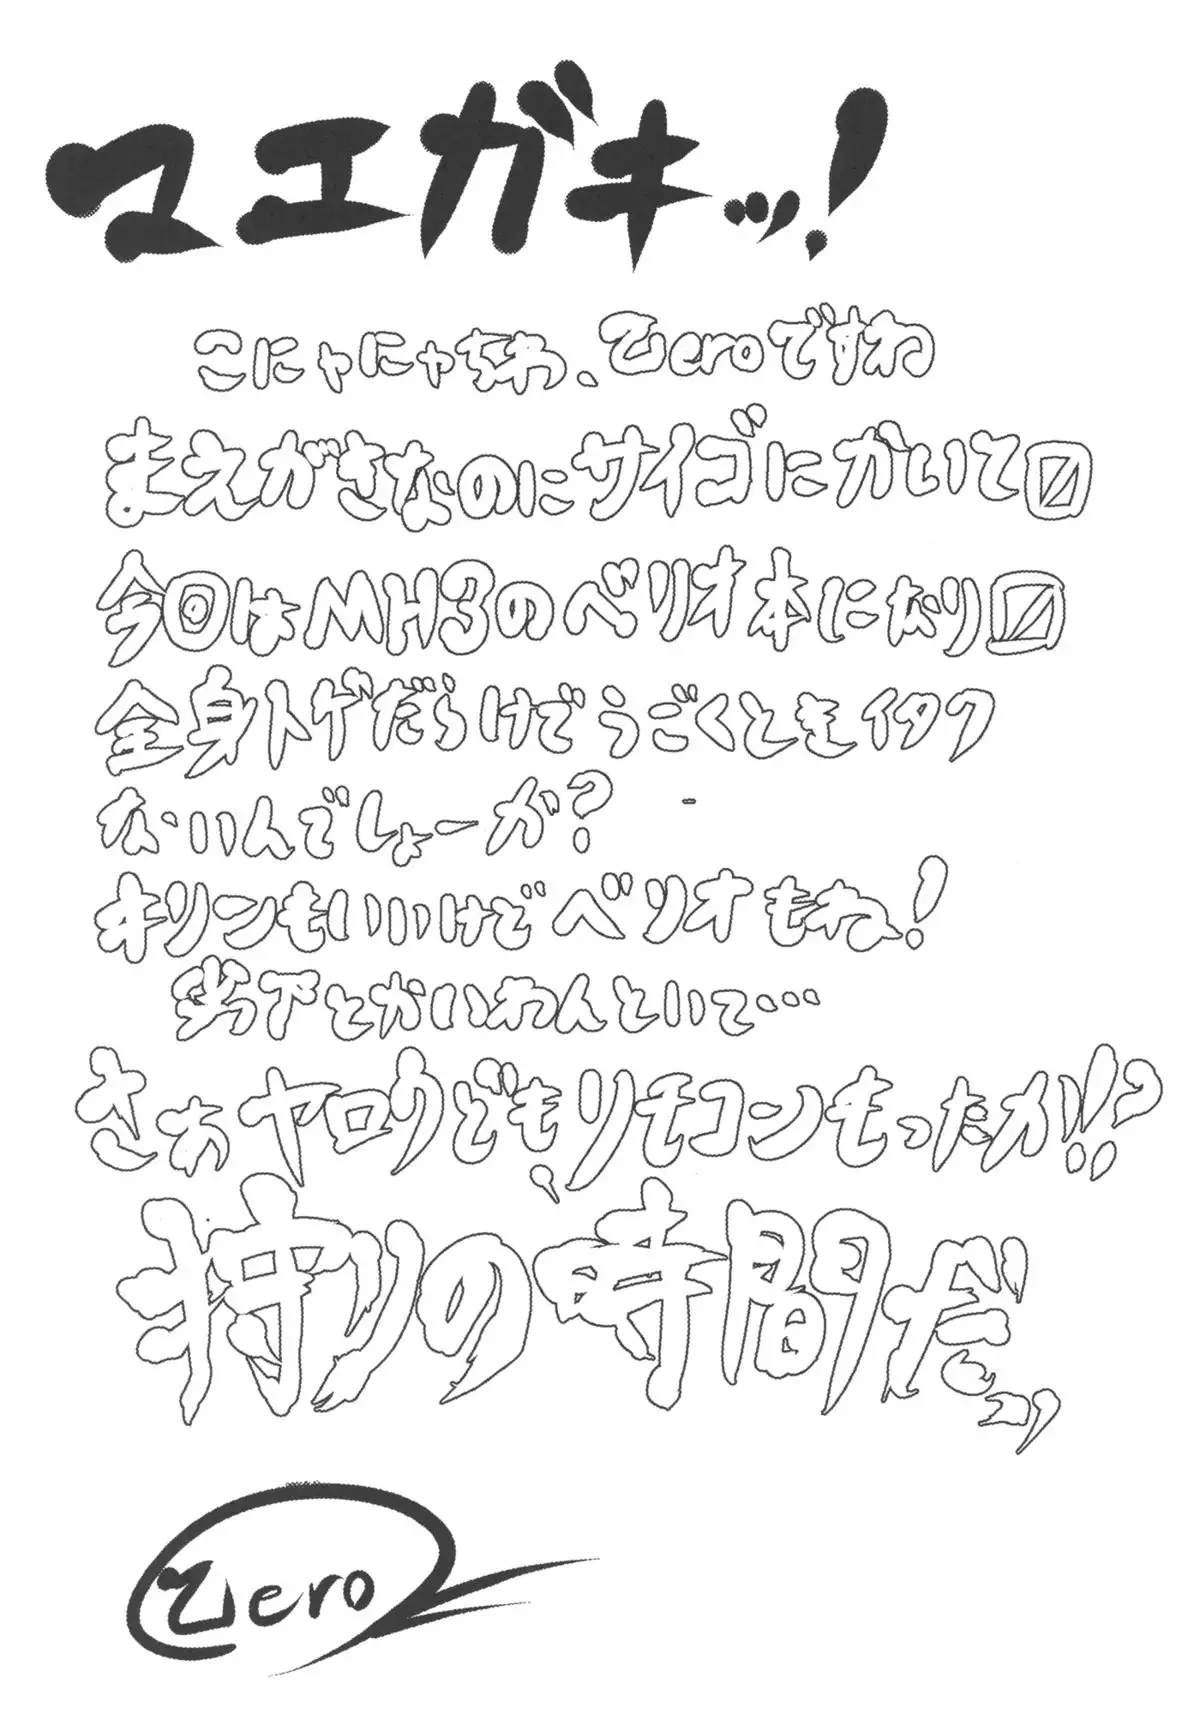 マエガキッ!
こにゃにゃちわ、Zeroですね
まえがきなのにサイゴにかいて〼
今回はMH3のベリオ本になり〼
全身トゲだらけでうごくときイタク
ないんでしょーか?
キリンもいいけどベリオもね!
劣下とかいわんといて…
さぁヤロウども、リモコンもったか!!?
狩りの時間だッ
Zero